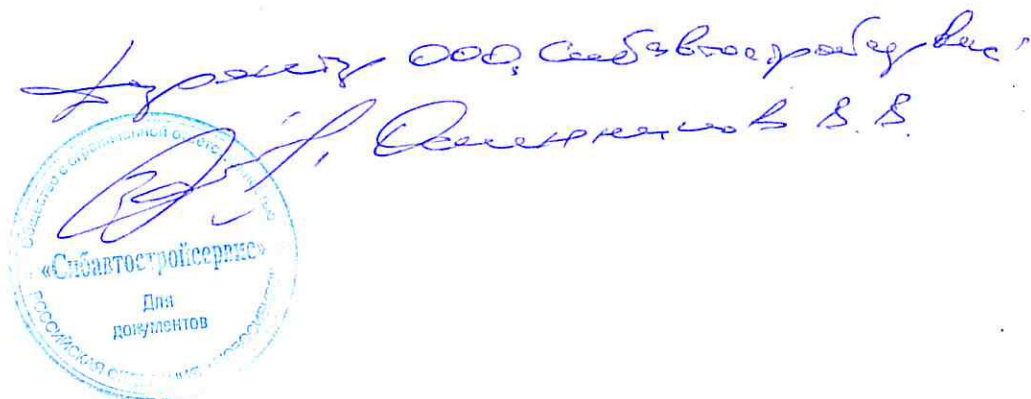 Директор ООО "Сибавтостройсервис"
В. В.
Общество с ограниченной ответственностью
«Сибавтостройсервис»
Для
документов
РОССИЙСКАЯ ФЕДЕРАЦИЯ г. НОВОСИБИРСК